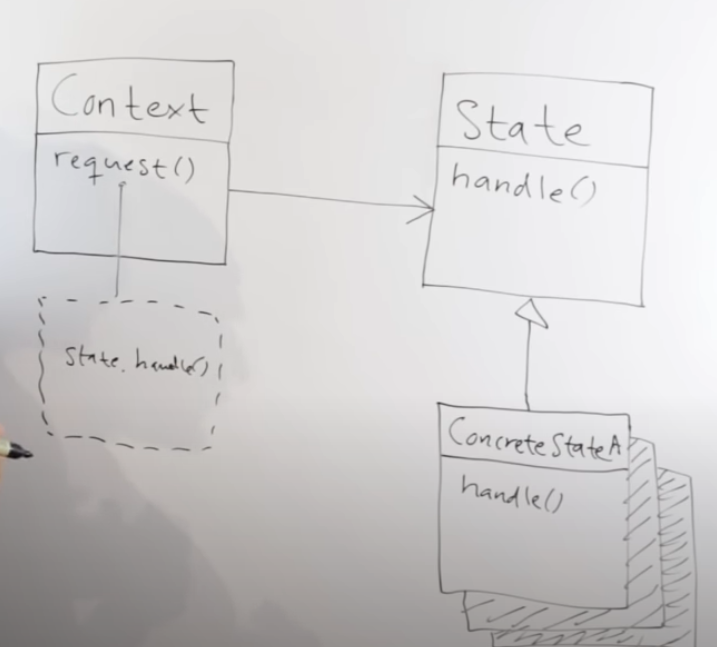 Context
request()
State
handle()
state.handle()
ConcreteStateA
handle()